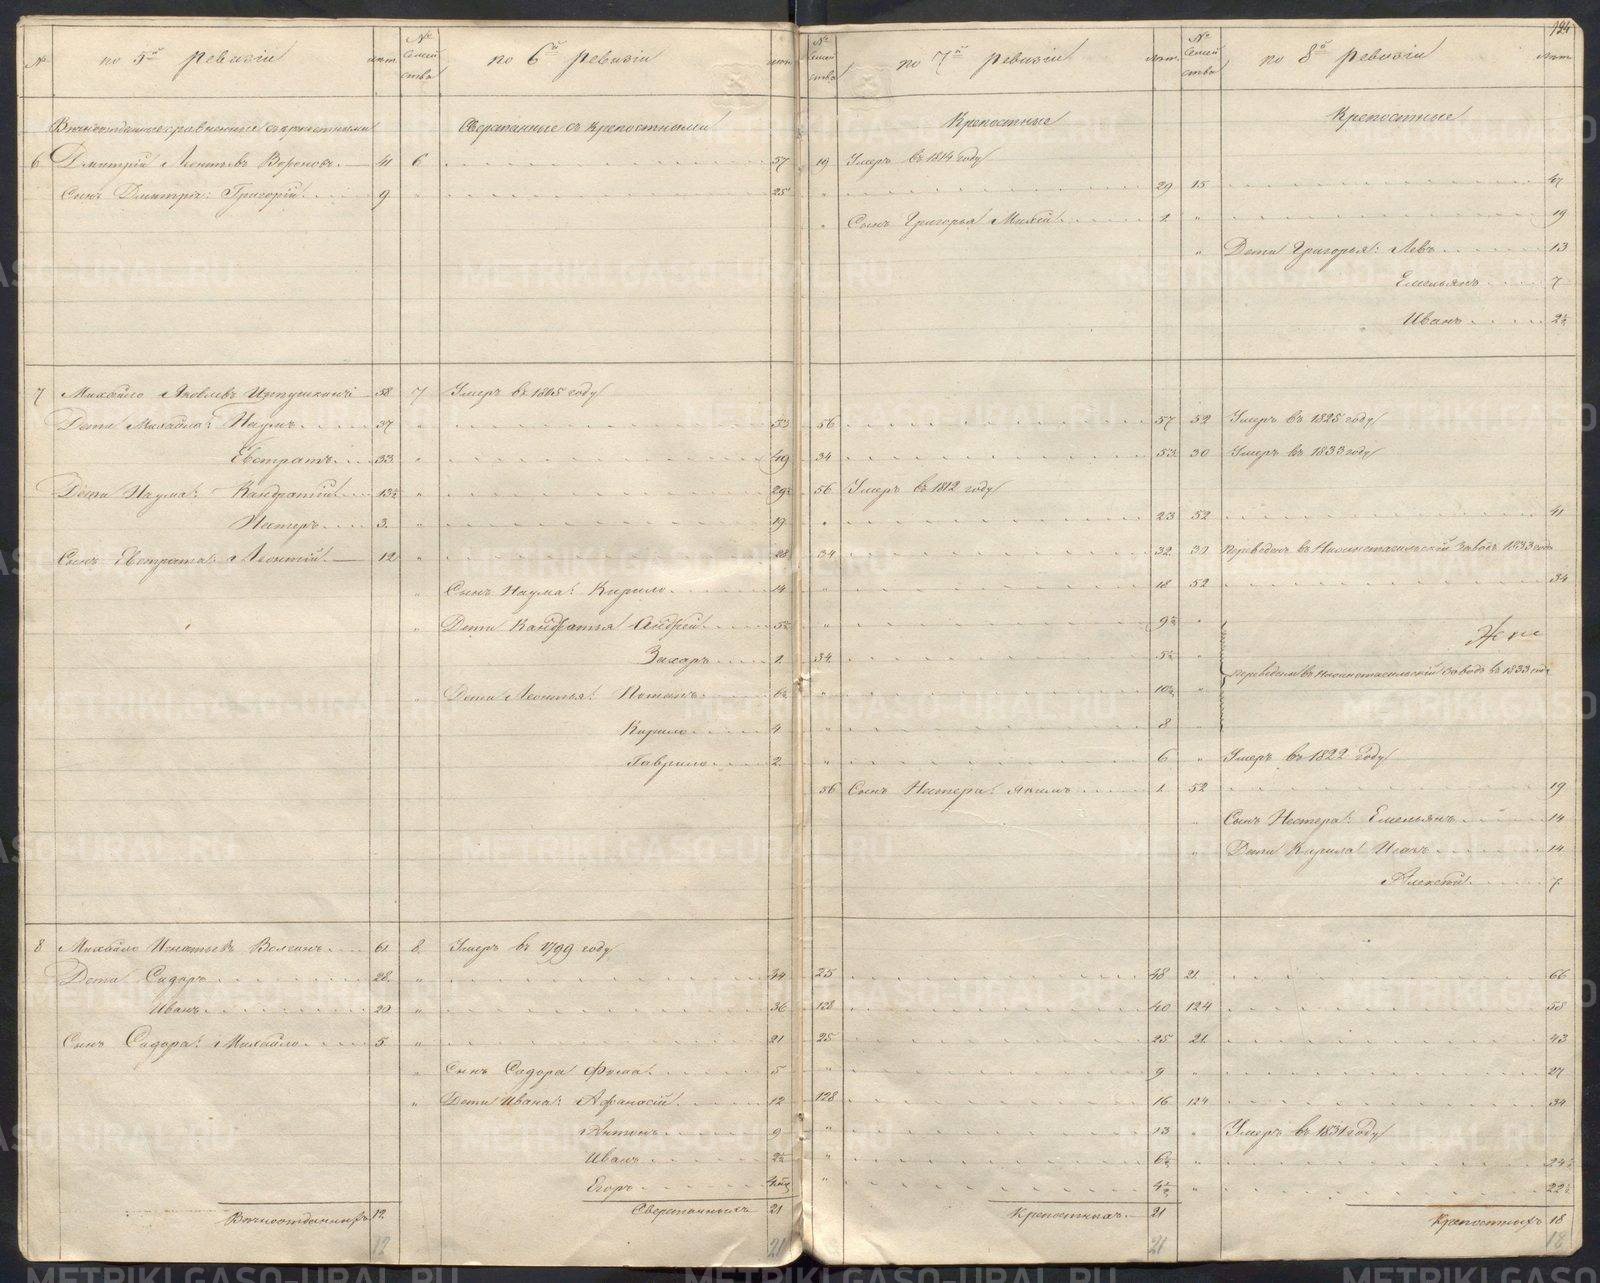 194
№ по 5й ревизіи лѣт. № Семейства по 6й ревизіи лѣт. № Семейства по 7й ревизіи лѣт. № Семейства по 8й ревизіи лѣт.
Вѣчноотданные сравненные съ крѣпостными Сверстанные съ крѣпостными Крѣпостные Крѣпостные
6 Дмитрій Леонтьевъ Вороновъ 41 6 57 19 Умеръ въ 1814 году
Сынъ Дмитрія: Григорій 9 " 25 " 29 15 47
" Сынъ Григорья Михей 1 " 19
" Дѣти Григорья: Левъ 13
Емельянъ 7
Иванъ 2½
7 Михайло Яковлевъ 58 7 Умеръ въ 1805 году
Дѣти Михайла: Наумъ 37 " 53 56 57 52 Умеръ въ 1825 году
Евстратъ 33 " 49 34 53 30 Умеръ въ 1833 году
Дѣти Наума: Кандратій 13½ " 29½ 56 Умеръ въ 1812 году
Нестеръ 3 " 19 " 23 52 41
Сынъ Евстрата: Леонтій 12 " 28 34 32 30 Переведенъ въ Нижнетагильскій Заводъ 1833 года
" Сынъ Наума: Кирило 14 " 18 52 34
" Дѣти Кандратья Андрей 5½ " 9½ "
Захаръ 1 34 5½ "
Переведены въ Нижнетагильскій Заводъ въ 1833 году
" Дѣти Леонтья: Потапъ 6½ " 10½ "
Кирило 4 " 8
Гаврило 2 " 6 " Умеръ въ 1822 году
56 Сынъ Нестера: Якимъ 1 52 19
" Сынъ Нестера: Емельянъ 14
" Дѣти Кирила Исакъ 14
Алексѣй 7
8 Михайло Игнатьевъ 61 8 Умеръ въ 1799 году
Дѣти Сидоръ 28 " 44 25 48 21 66
Иванъ 20 " 36 128 40 124 58
Сынъ Сидора: Михайло 5 " 21 25 25 21 43
" Сынъ Сидора Фома 5 " 9 " 27
" Дѣти Ивана: Афанасій 12 128 16 124 34
Антонъ 9 " 13 " Умеръ въ 1831 году
Иванъ 2½ " 6½ " 24½
Егоръ " 4½ " 22½
Вѣчноотданныхъ 12 Сверстанныхъ 21 Крѣпостныхъ 21 Крѣпостныхъ 18
12 21 21 18
METRIKI.GASO-URAL.RU